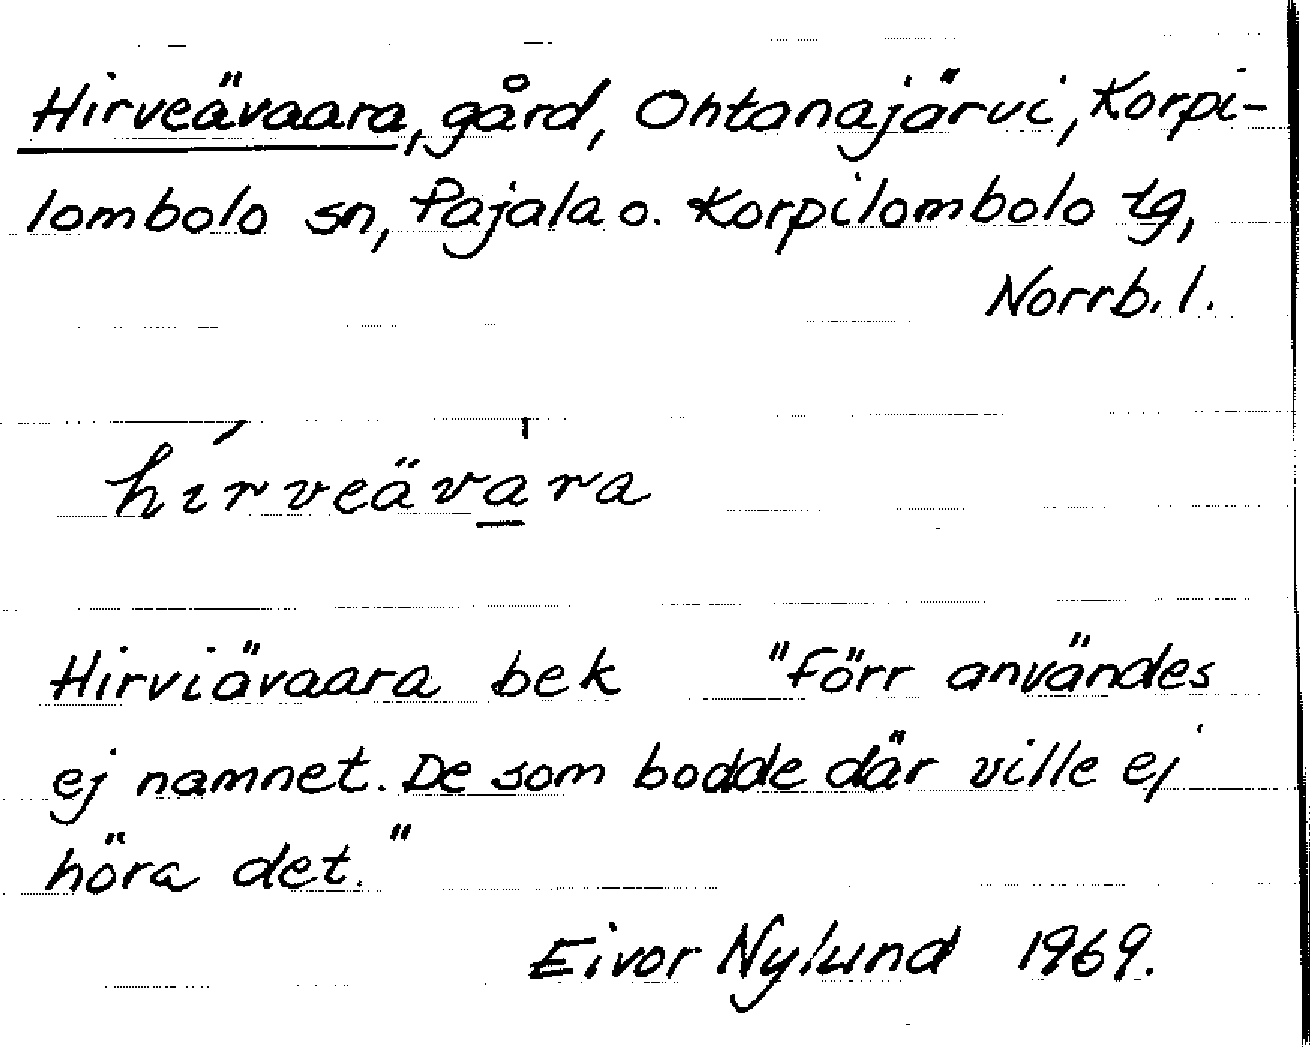 Hirveävaara, gård, Ohtanajärvi, Korpi-
lombolo sn, Pajala o. Korpilombolo tg,
Norrb. l.
hírveävа̲̍ra
Hirviävaara bek "Förr användes
ej namnet. De som bodde där ville ej
höra det."
Eivor Nylund 1969.